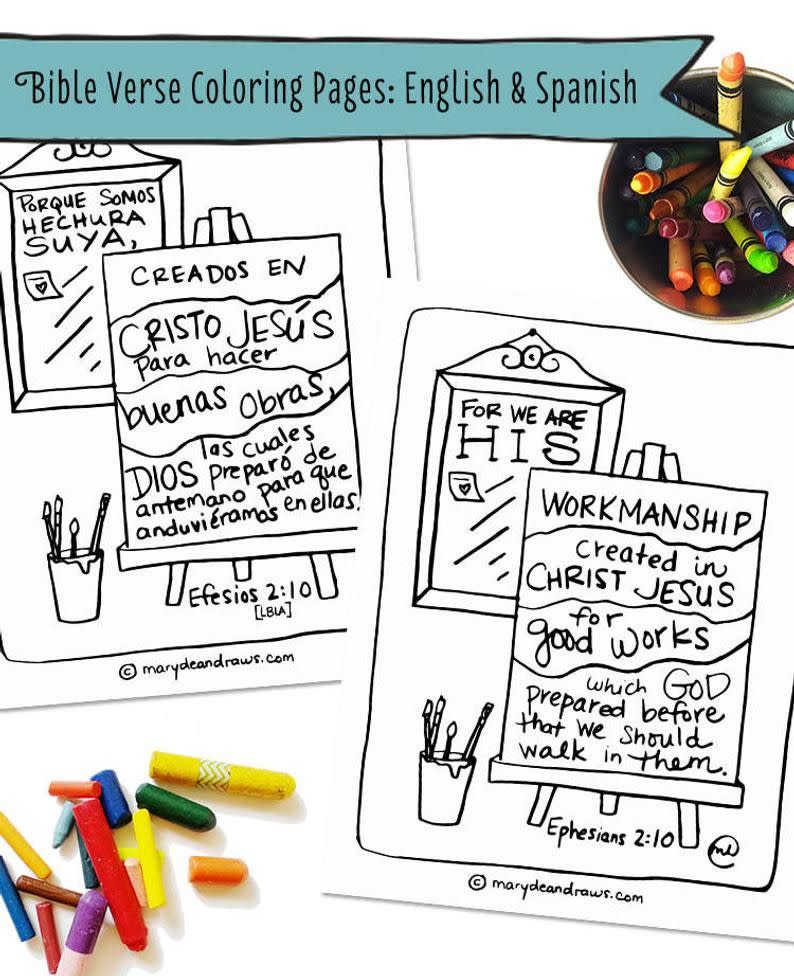 Bible Verse Coloring Pages: English & Spanish
PORQUE SOMOS
HECHURA
SUYA,
CREADOS EN
CRISTO JESÚS
Para hacer
buenas Obras,
las cuales
DIOS preparó de
antemano para que
anduviéramos en ellas.
Efesios 2:10
[LBLA]
© marydeandraws.com
FOR WE ARE
HIS
WORKMANSHIP
created in
CHRIST JESUS
for
good works
which GOD
Prepared before
that we should
walk in them.
Ephesians 2:10
© marydeandraws.com